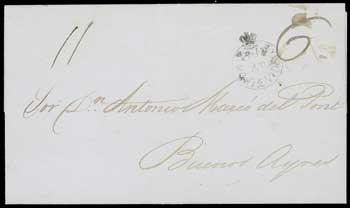 11
6
Sor Dn Antonio Mares del Pont
Buenos Ayres